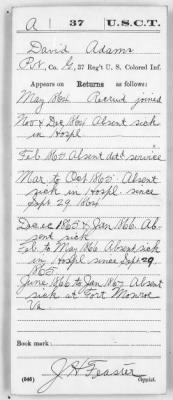 A | 37 | U.S.C.T.
David Adams
Pvt, Co. G, 37 Reg't U. S. Colored Inf.
Appears on Returns as follows:
May 1864 Recruit joined
Nov & Dec 1864 Absent sick
in Hospl
Feb 1865 Absent detd service
Mar to Oct 1865. Absent
sick in Hospl since
Sept 29 1864
Dec 1865 & Jan 1866. Ab-
sent sick
Feb to May 1866 Absent sick
in Hospl since Sept 29
1865
June 1866 to Jan 1867 Absent
sick at Fort Monroe
Va
Book mark:
J H Feaster
(546) Copyist.